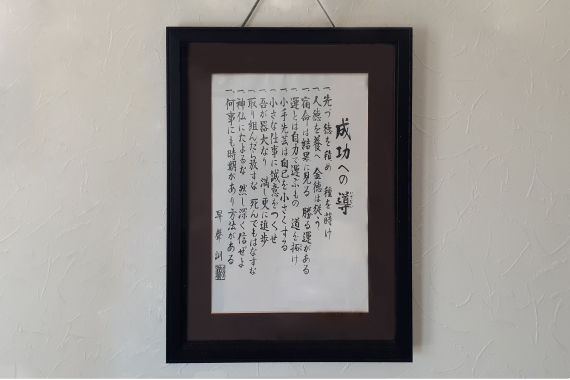 成功への導
一、先づ徳を積め 種を蒔け
一、人徳を養へ 金徳は従う
一、宿命は結果に見る 勝る運がある
一、運とは自力で運ぶもの 道を拓け
一、小手先芸は自己を小さくする
一、小さな仕事に誠意をつくせ
一、吾が器大なり 満し更に進歩
一、取り組んだら放すな 死んでもはなすな
一、神仏にたよるな 然し深く信ぜよ
一、何事にも時期があり方法がある
訓